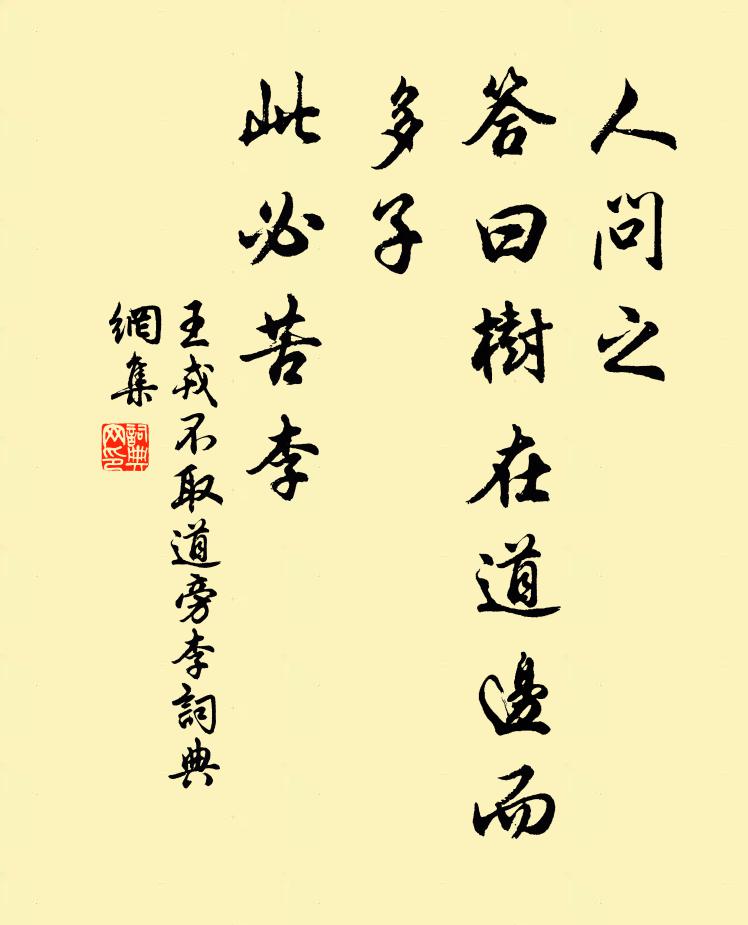 人問之
答曰樹在道邊而
多子
此必苦李
王戎不取道旁李詞典
網集
詞典
网印